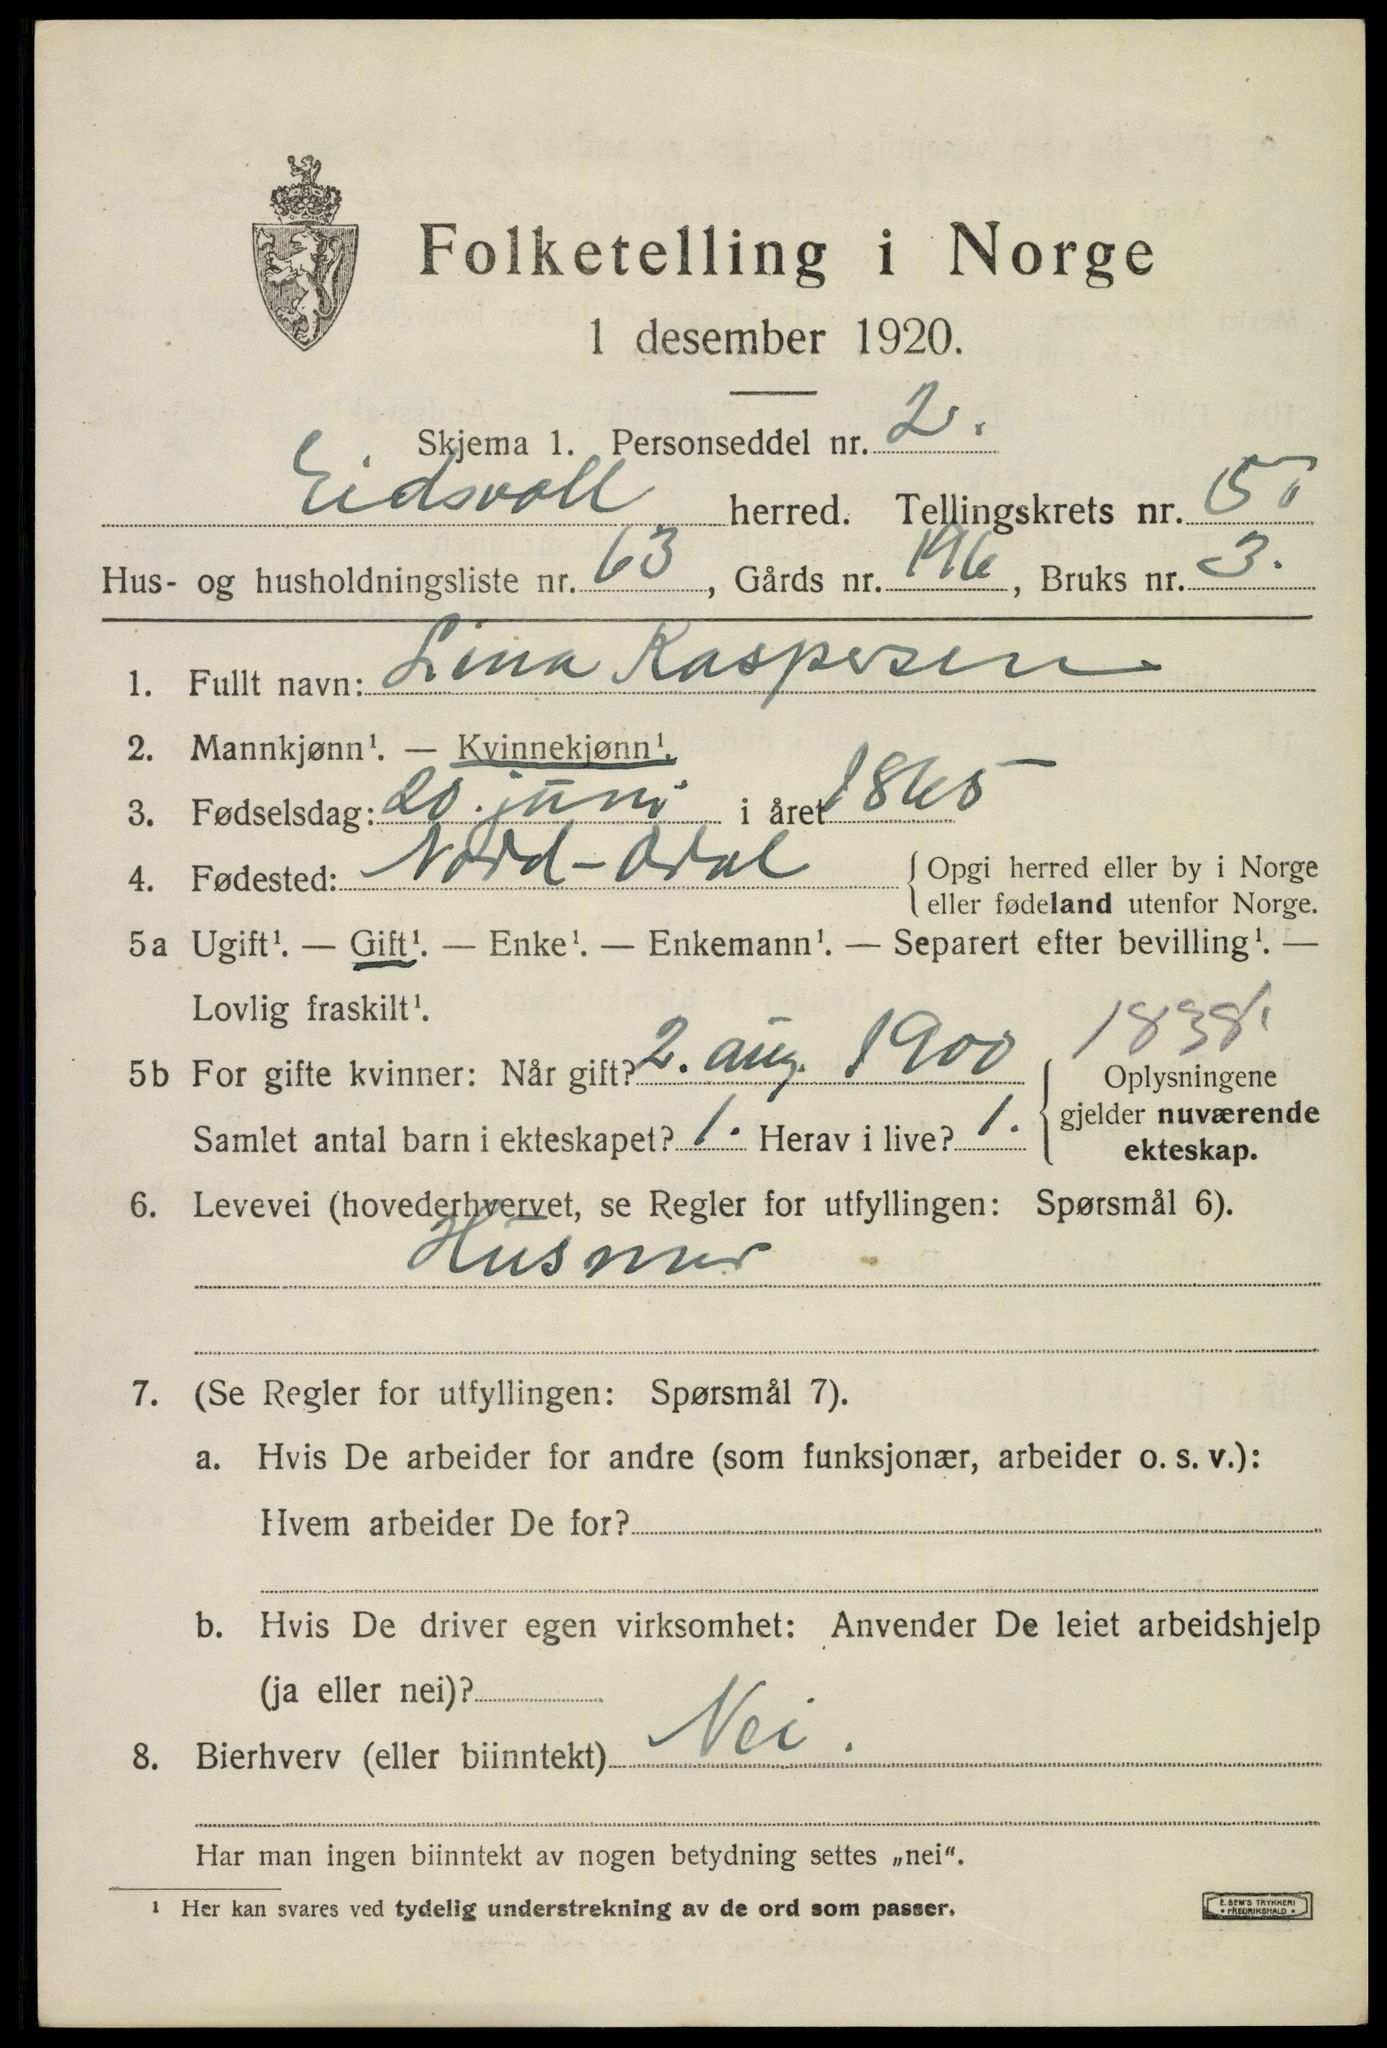 Folketelling i Norge
1 desember 1920.
Skjema 1. Personseddel nr. 2.
Eidsvoll herred. Tellingskrets nr. 15.
Hus- og husholdningsliste nr. 63, Gårds nr. 196, Bruks nr. 3.
1. Fullt navn: Lina Kaspersen
2. Mannkjønn¹. — Kvinnekjønn¹.
3. Fødselsdag: 20. juni i året 1865
4. Fødested: Nord-Odal { Opgi herred eller by i Norge
eller fødeland utenfor Norge.
5a Ugift¹. — Gift¹. — Enke¹. — Enkemann¹. — Separert efter bevilling¹. —
Lovlig fraskilt¹.
1838.
5b For gifte kvinner: Når gift? 2. aug. 1900 Oplysningene
gjelder nuværende
Samlet antal barn i ekteskapet? 1. Herav i live? 1. ekteskap.
6. Levevei (hovederhvervet, se Regler for utfyllingen: Spørsmål 6).
Husmor
7. (Se Regler for utfyllingen: Spørsmål 7).
a. Hvis De arbeider for andre (som funksjonær, arbeider o. s. v.):
Hvem arbeider De for?
b. Hvis De driver egen virksomhet: Anvender De leiet arbeidshjelp
(ja eller nei)?
8. Bierhverv (eller biinntekt) Nei.
Har man ingen biinntekt av nogen betydning settes „nei“.
¹ Her kan svares ved tydelig understrekning av de ord som passer.
E. SEM'S TRYKKERI
• FREDRIKSHALD •